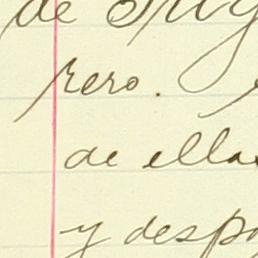 de
rero.
de ellas
y desp